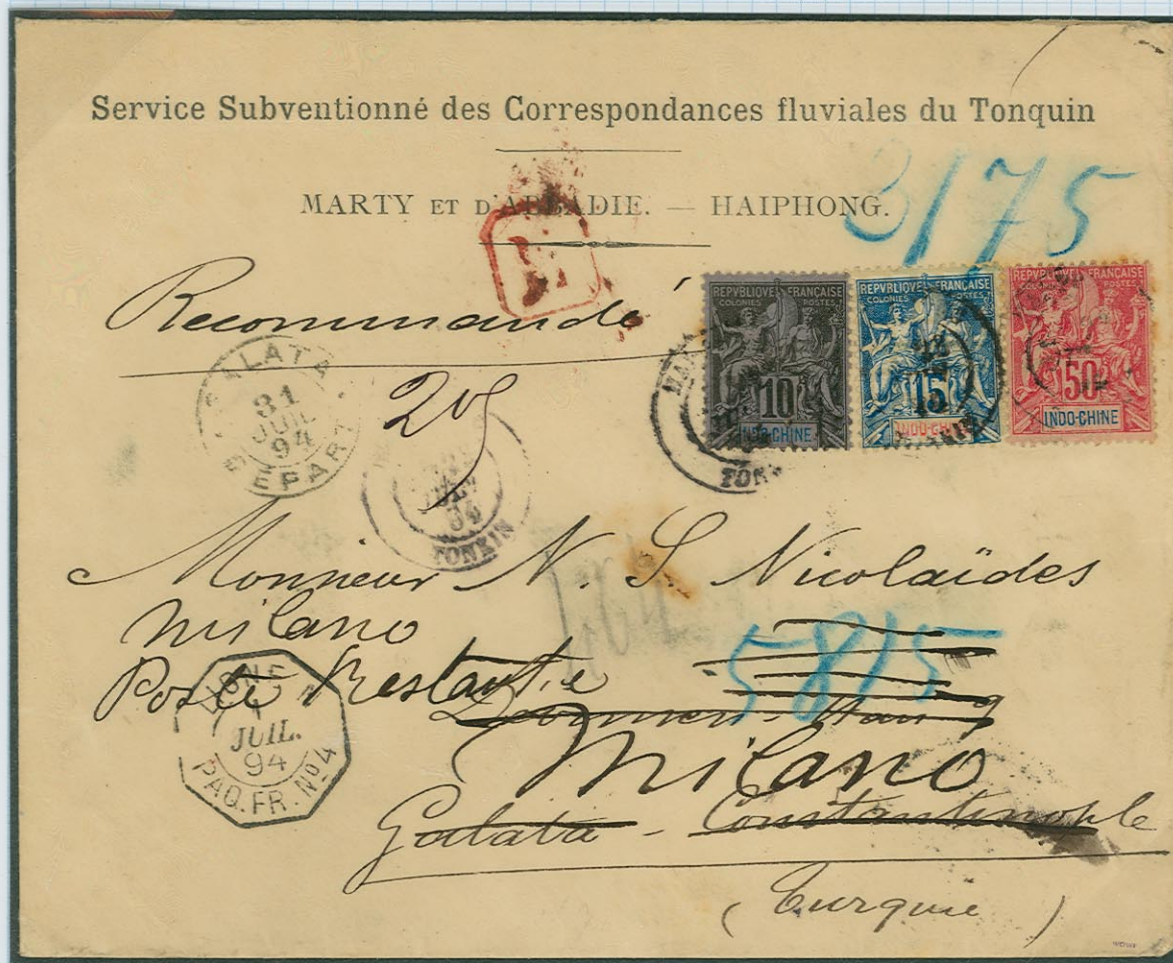 Service Subventionné des Correspondances fluviales du Tonquin
MARTY ET D'ABBADIE. — HAIPHONG.
3175
R
Recommandé
REPVBLIQVE FRANÇAISE
COLONIES POSTES
10
INDO-CHINE
REPVBLIQVE FRANÇAISE
COLONIES POSTES
15
INDO-CHINE
REPVBLIQVE FRANÇAISE
COLONIES POSTES
50
INDO-CHINE
TONKIN
GALATA
31
JUIL
94
DEPART
JUIL
94
TONKIN
Monsieur N. S. Nicolaïdes
Milano
Poste Restante
5815
Milano
Galata - Constantinople
(Turquie)
LIGNE N
1
JUIL.
94
PAQ. FR. Nº 4